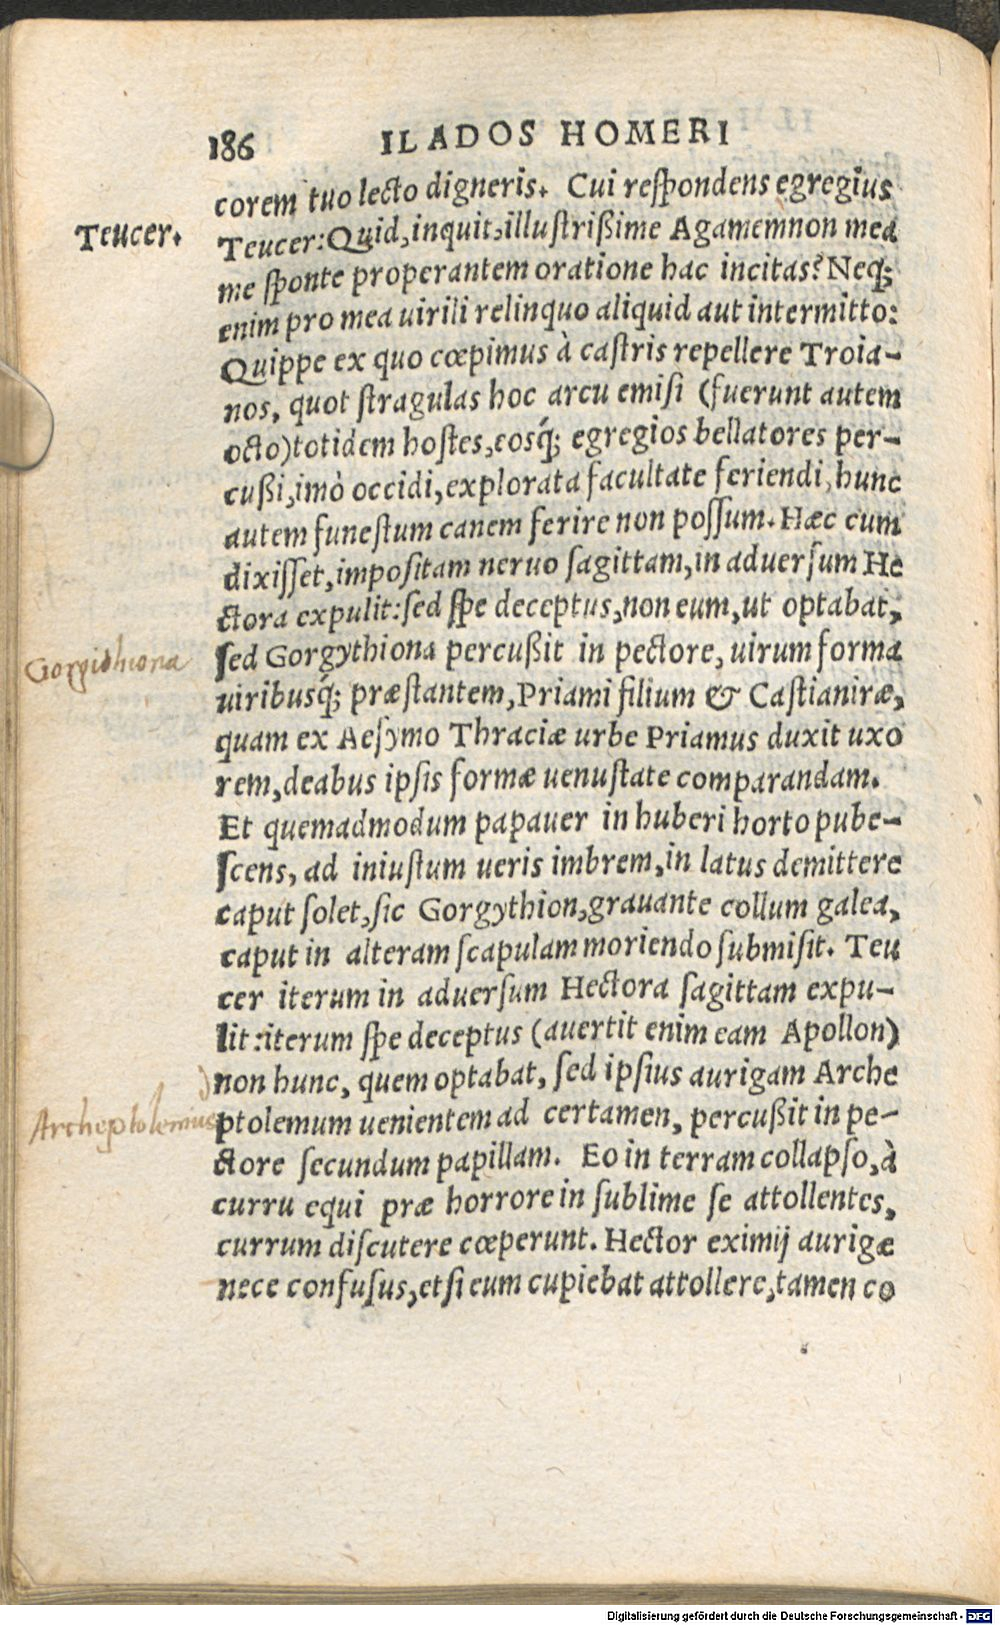 186 ILADOS HOMERI
corem tuo lecto digneris. Cui reſpondens egregius
Teucer.
Teucer: Quid, inquit, illuſtrißime Agamemnon mea
me ſponte properantem oratione hac incitas? Neq;
enim pro mea uirili relinquo aliquid aut intermitto:
Quippe ex quo cœpimus à caſtris repellere Troia-
nos, quot ſtragulas hoc arcu emiſi (fuerunt autem
octo) totidem hoſtes, eosq́; egregios bellatores per-
cußi, imò occidi, explorata facultate feriendi, hunc
autem funeſtum canem ferire non poſſum. Hæc cum
dixiſſet, impoſitam neruo ſagittam, in aduerſum He
ctora expulit: ſed ſpe deceptus, non eum, ut optabat,
Gorgidhiona
ſed Gorgythiona percußit in pectore, uirum forma
uiribusq́; præſtantem, Priami filium & Caſtianiræ,
quam ex Aeſymo Thraciæ urbe Priamus duxit uxo
rem, deabus ipſis formæ uenuſtate comparandam.
Et quemadmodum papauer in huberi horto pube-
ſcens, ad iniuſtum ueris imbrem, in latus demittere
caput ſolet, ſic Gorgythion, grauante collum galea,
caput in alteram ſcapulam moriendo ſubmiſit. Teu
cer iterum in aduerſum Hectora ſagittam expu-
lit: iterum ſpe deceptus (auertit enim eam Apollon)
non hunc, quem optabat, ſed ipſius aurigam Arche
Archeptolemius
ptolemum uenientem ad certamen, percußit in pe-
ctore ſecundum papillam. Eo in terram collapſo, à
curru equi præ horrore in ſublime ſe attollentes,
currum diſcutere cœperunt. Hector eximij aurigæ
nece confuſus, etſi eum cupiebat attollere, tamen co
Digitalisierung gefördert durch die Deutsche Forschungsgemeinschaft - DFG